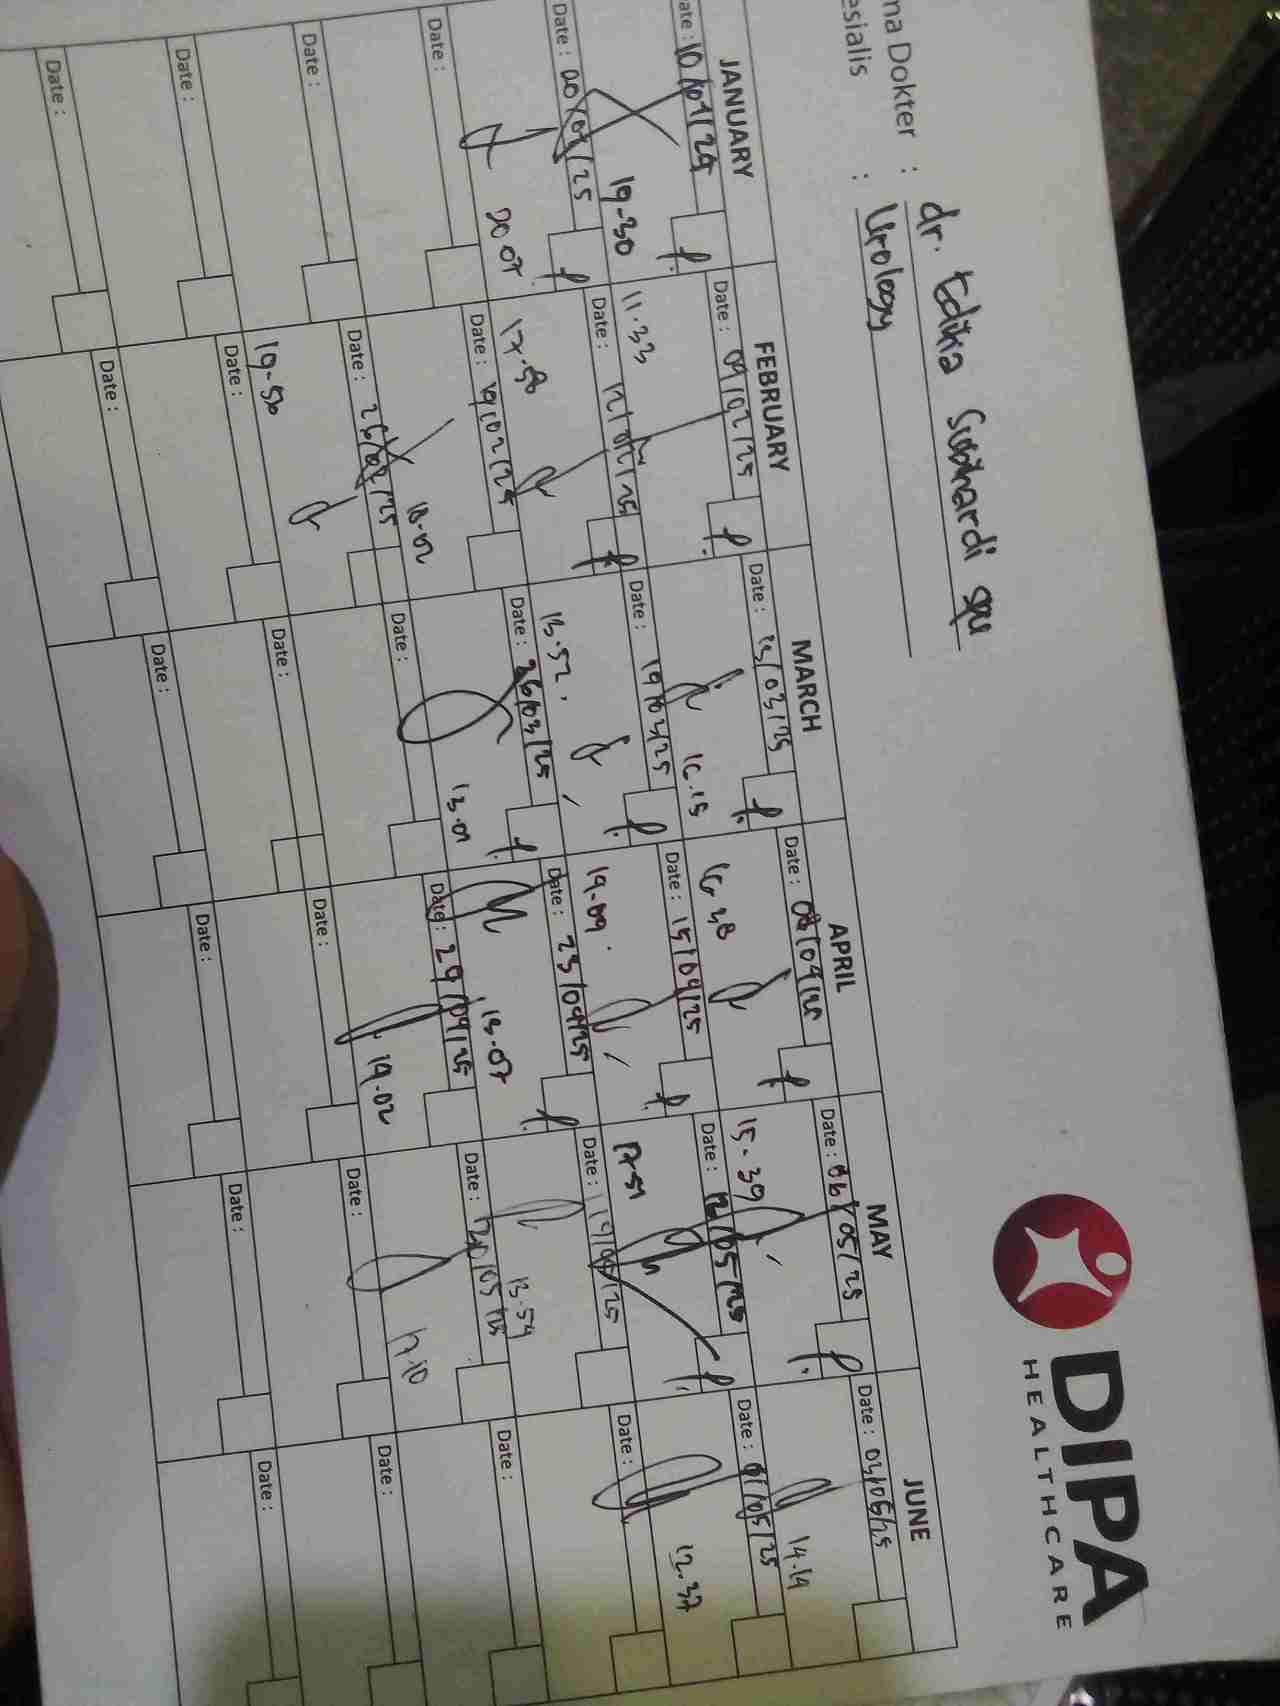 DIPA
HEALTHCARE
ma Dokter : dr. Edika Sobihardi spu
esialis : Urology
JANUARY FEBRUARY MARCH APRIL MAY JUNE
ate : 10/01/25 Date : 04/02/25 Date : 13/03/25 Date : 08/04/25 Date : 06/05/25 Date : 03/06/25
19-30 11.33 16.15 16.38 15-39 14.14
Date : Date : 12/02/25 Date : 19/03/25 Date : 15/04/25 Date : 12/05/25 Date :
20 07 17.58 13.52. 19.09. 17-51 12.37
Date : Date : 19/02/25 Date : 26/03/25 Date : 23/04/25 Date : Date :
18-02 13.01 13-07 13.54
Date : Date : 26/02/25 Date : Date : 29/04/25 Date : 20/05/25 Date :
19-56 19.02 17.10
Date : Date : Date : Date : Date : Date :
Date : Date : Date : Date : Date : Date :